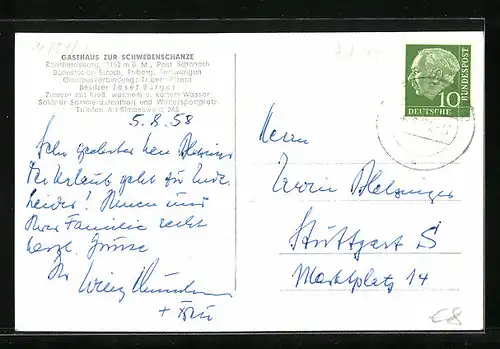 GASTHAUS ZUR SCHWEDENSCHANZE
Rohrhardsberg, 1152 m ü. M., Post Schonach
Bahnstation Elzach, Triberg, Furtwangen
Omnibusverbindung: Triberg-Elzach
Besitzer Josef Burger
Zimmer mit fließ. warmem u. kaltem Wasser
Schöner Sommeraufenthalt und Wintersportplatz
5. 8. 58
Sehr geehrter Herr
Der Urlaub geht zu Ende.
Leider! Ihnen und
Ihrer Familie recht
herzl. Grüsse
Ihr
+ Frau
DEUTSCHE
BUNDESPOST
10
Herrn
Erwin
Stuttgart S
Marktplatz 14